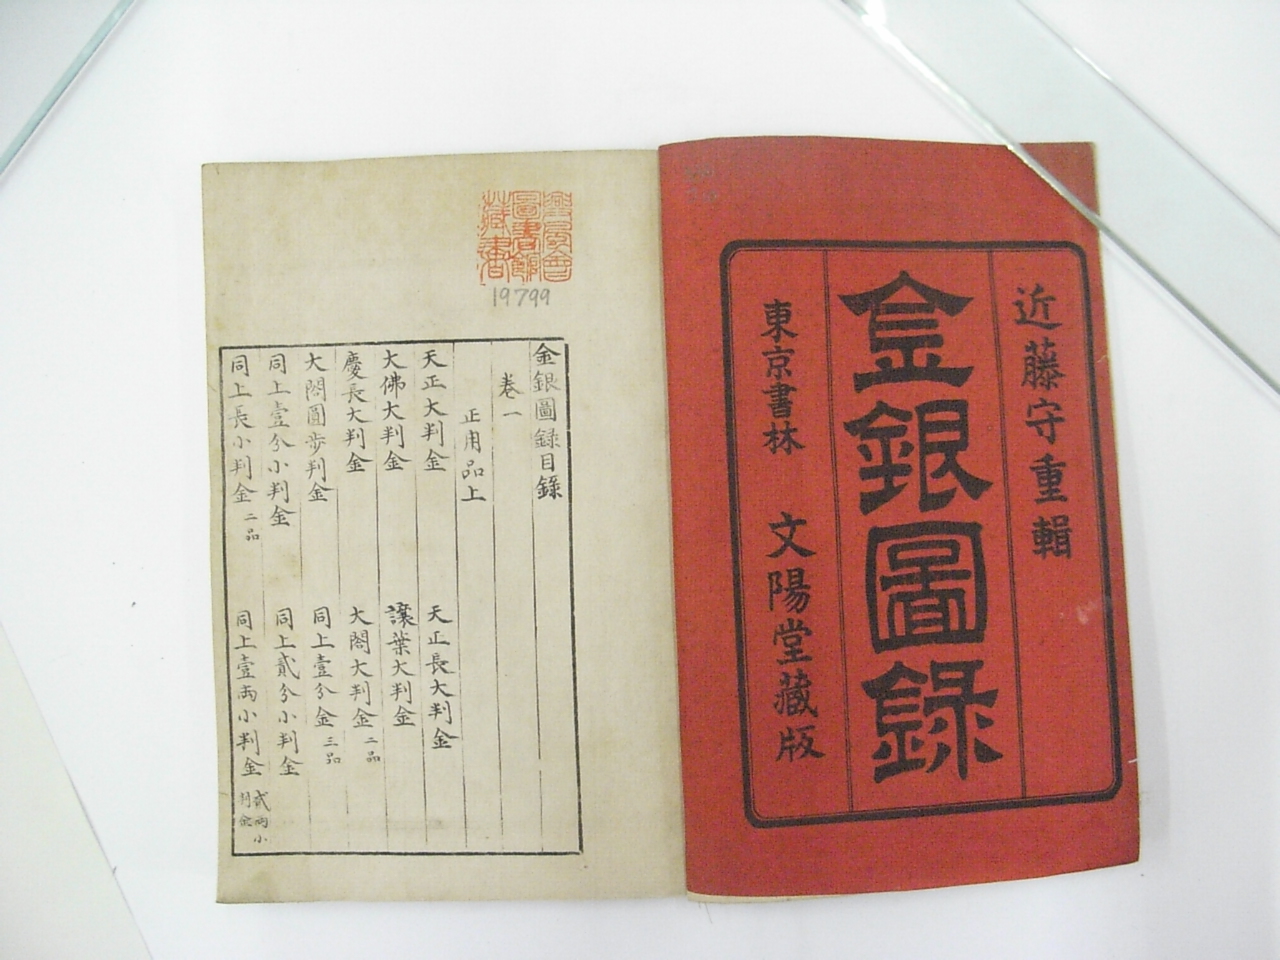 近藤守重輯
金銀圖録
東京書林 文陽堂藏版
圖書館
藏書
19799
金銀圖録目録
卷一
正用品上
天正大判金 天正長大判金
大佛大判金 讓葉大判金
慶長大判金 大閤大判金二品
大閤圓歩判金 同上壹分金三品
同上壹分小判金 同上貳分小判金
同上長小判金二品 同上壹兩小判金貳兩小判金